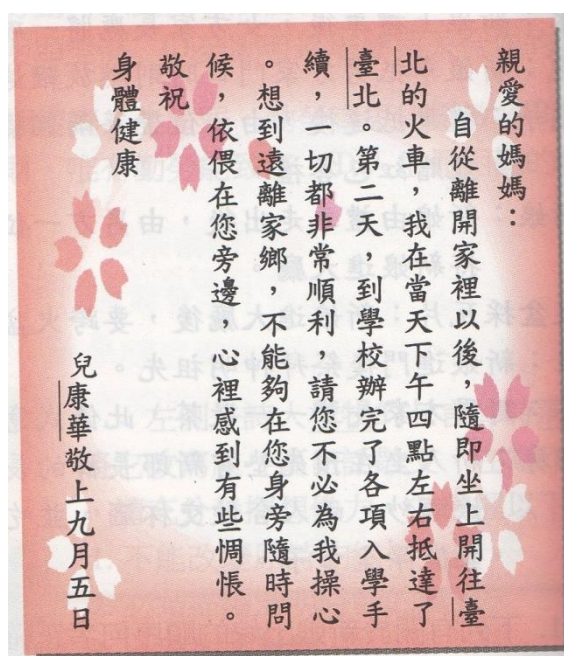 親愛的媽媽：
自從離開家裡以後，隨即坐上開往臺
北的火車，我在當天下午四點左右抵達了
臺北。第二天，到學校辦完了各項入學手
續，一切都非常順利，請您不必為我操心
。想到遠離家鄉，不能夠在您身旁隨時問
候，依偎在您旁邊，心裡感到有些惆悵。
敬祝
身體健康
兒康華敬上九月五日